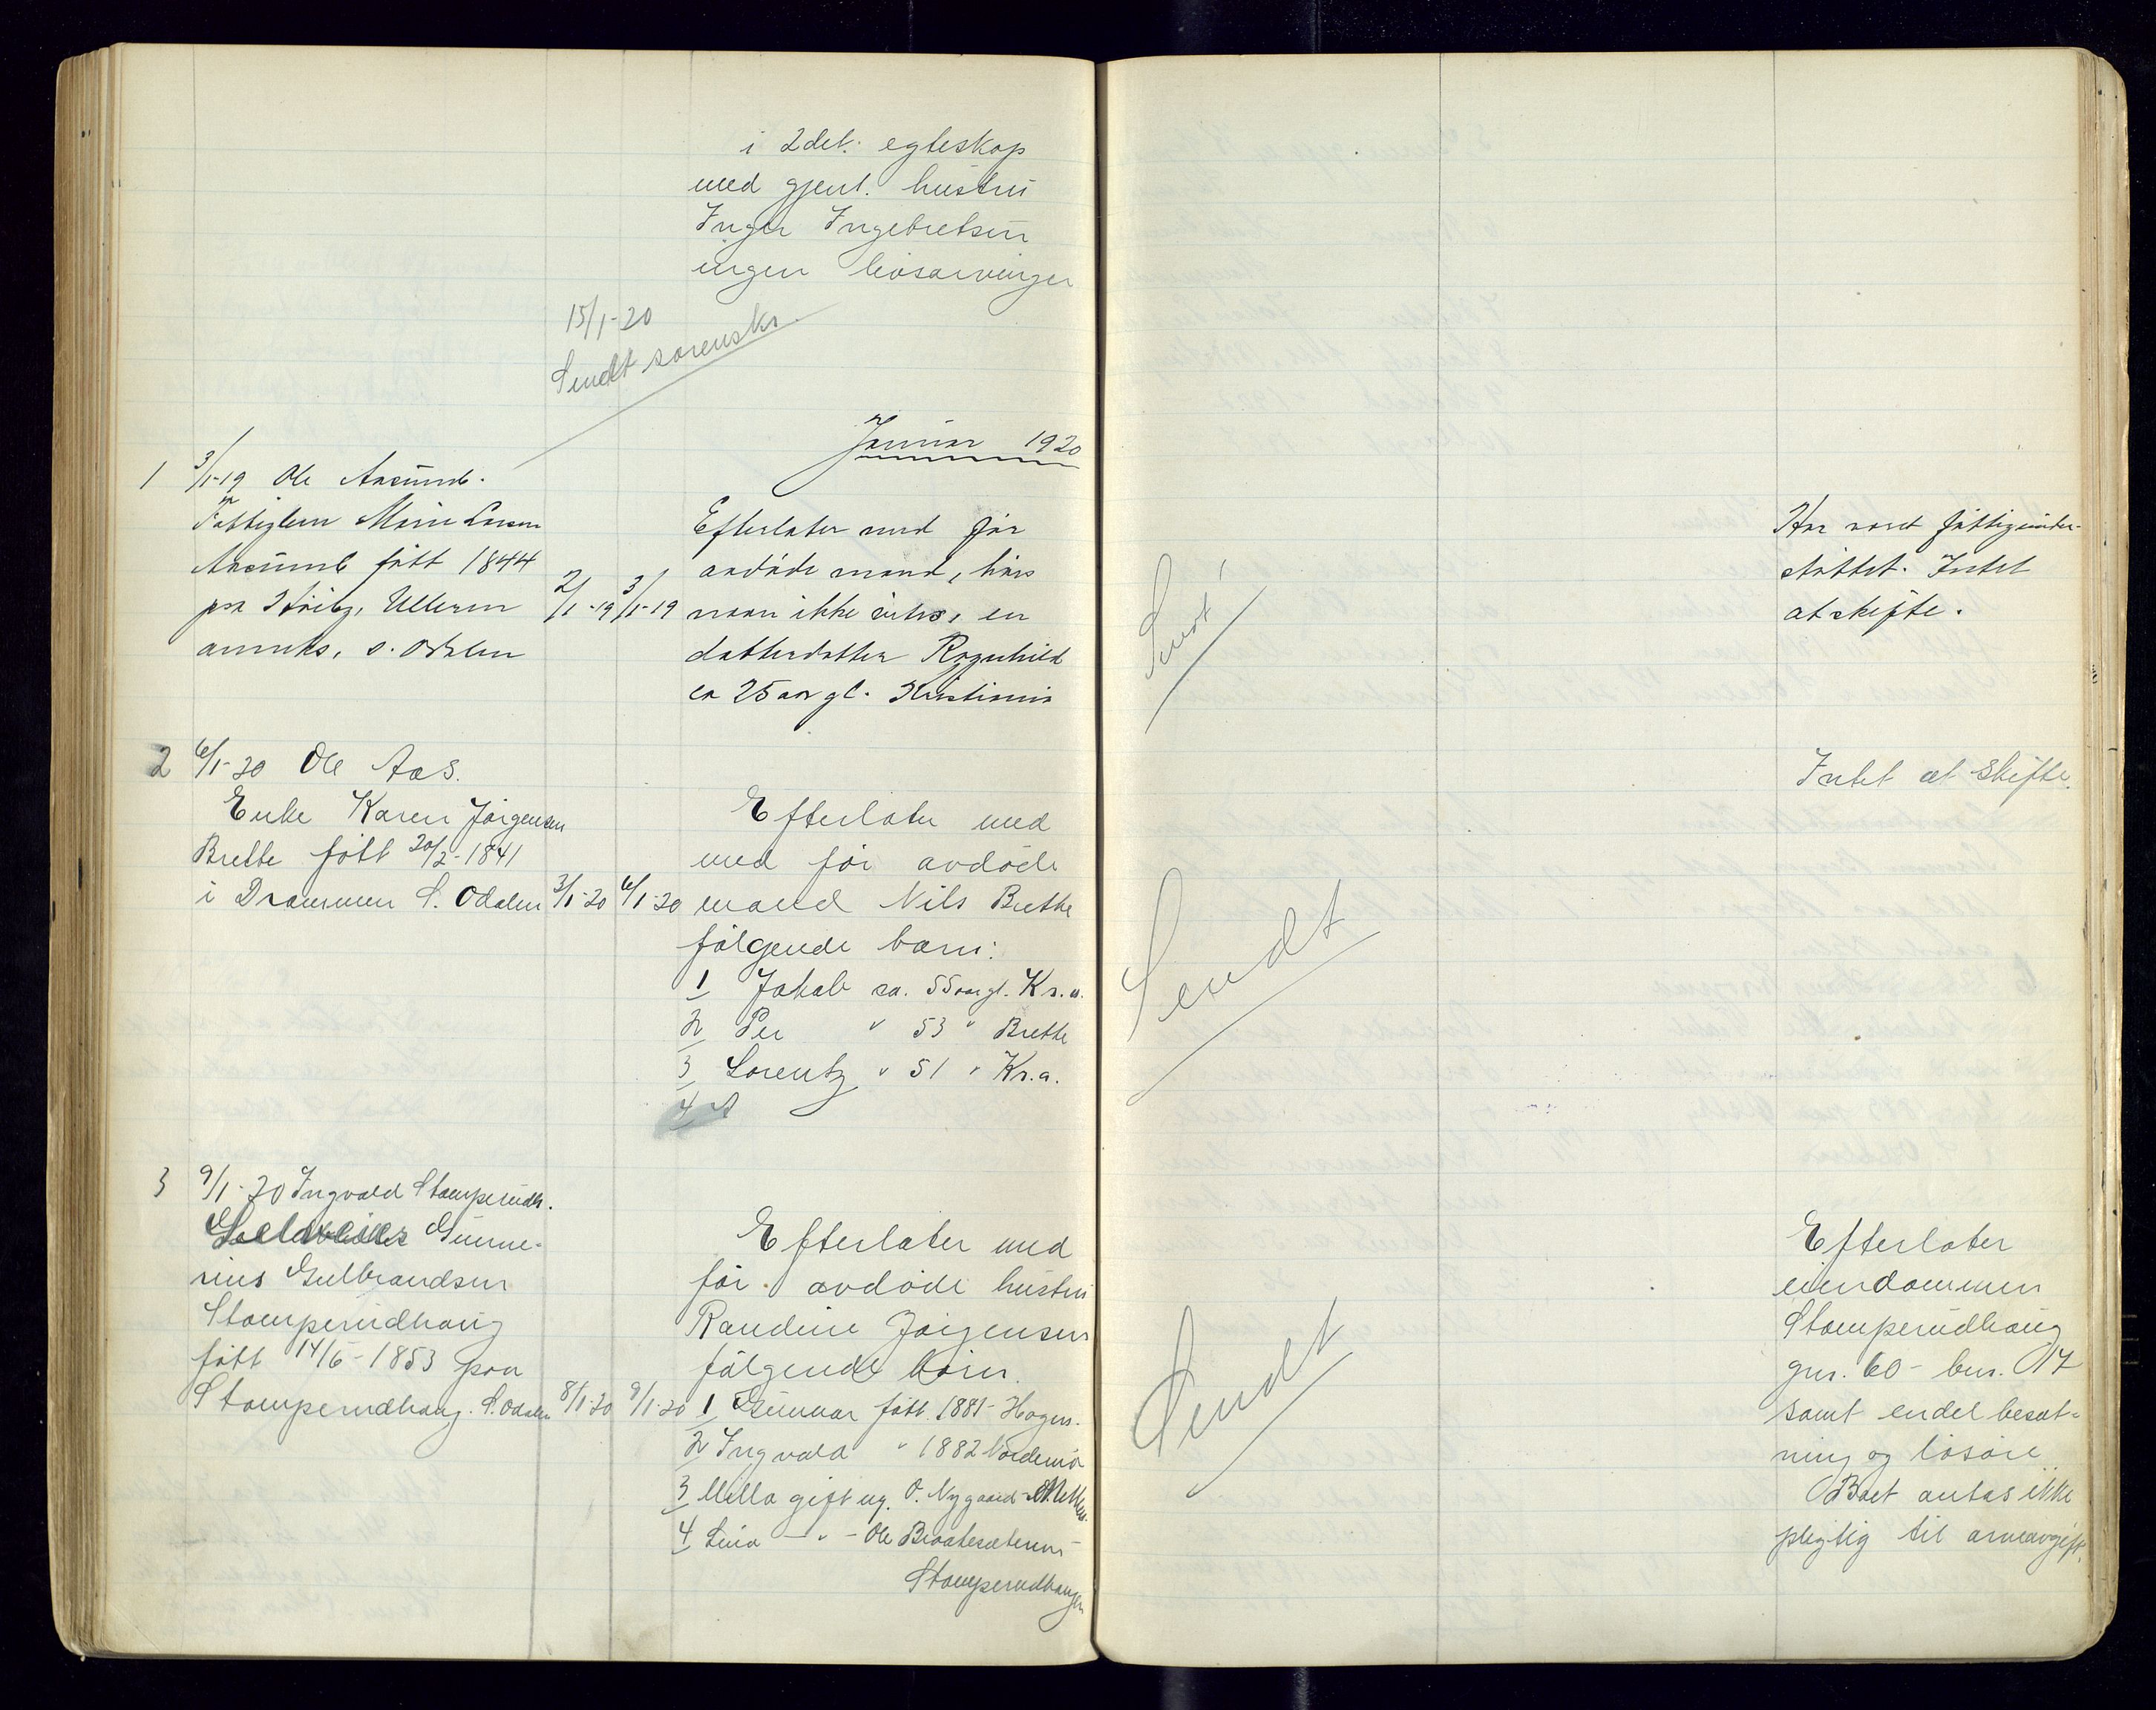 i 2det. egteskap
med gjenl. hustru
Inger Ingebretsen
ingen livsarvinger
15/1-20
Sendt sorenskr.
Januar 1920
1 3/1-19 Ole Aasumb.
Fattiglem Marie Larsen
Aasumb født 1844
paa Ullern
anneks, s. Odalen
2/1-19 3/1-19
Efterlater med før
avdøde mand, hvis
navn ikke vites, en
datterdatter Ragnhild
ca 25 aar gl. Kristiania
Sendt
Har været fattigunder-
støttet. Intet
at skifte.
2 6/1-20 Ole Aas.
Enke Karen Jørgensen
Brette født 20/2-1841
i Drammen S. Odalen 3/1-20 6/1-20
Efterlater med
med før avdøde
mand Nils Brette
følgende barn:
1 Jakob ca. 55 aar gl. Kr.a.
2 Per " 53 " Brette
3 Lorentz " 51 " Kr.a.
4 A
Sendt
Intet at skifte.
3 9/1-20 Ingvald Stamperudh.
Gunne-
rius Gulbrandsen
Stamperudhaug
født 14/6-1853 paa
Stamperudhaug. S. Odalen 8/1-20 9/1-20
Efterlater med
før avdøde hustru
Randine Jørgensen
følgende barn.
1 Gunnar født 1881 - Hagen.
2 Ingvald " 1882
3 Milla gift m. O. Nygaard
4 Lina — " — Ole
Stamperudhaugen
Sendt
Efterlater
eiendommen
Stamperudhaug
gnr. 60 - bnr. 17
samt endel besæt-
ning og løsøre
Boet antas ikke
pligtig til arveavgift.